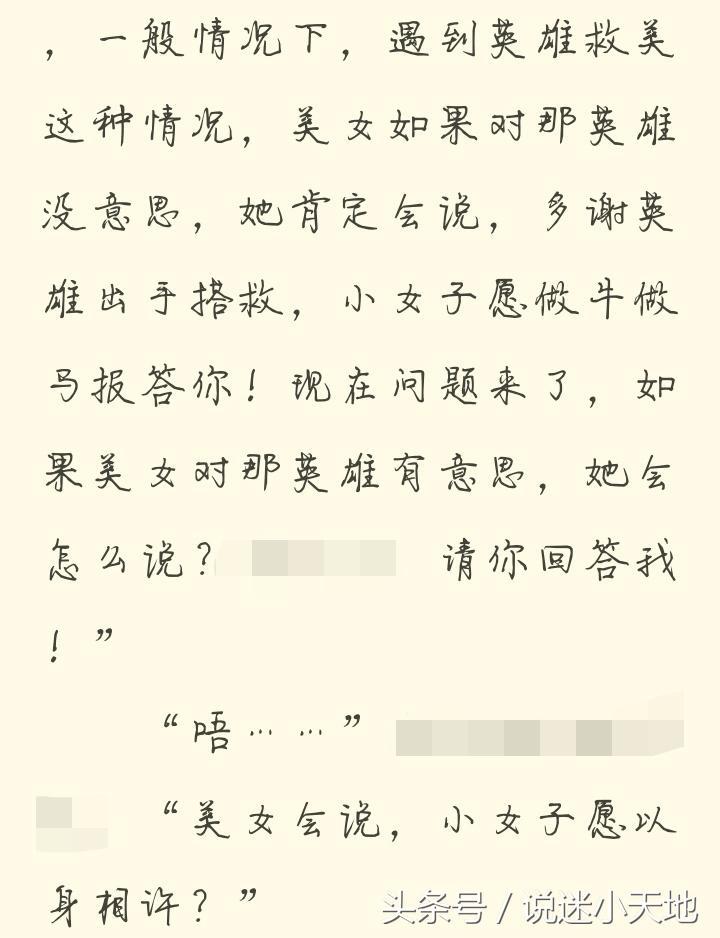 ，一般情况下，遇到英雄救美
这种情况，美女如果对那英雄
没意思，她肯定会说，多谢英
雄出手搭救，小女子愿做牛做
马报答你！现在问题来了，如
果美女对那英雄有意思，她会
怎么说？ 请你回答我
！”
“唔……”
“美女会说，小女子愿以
身相许？”
头条号 / 说迷小天地